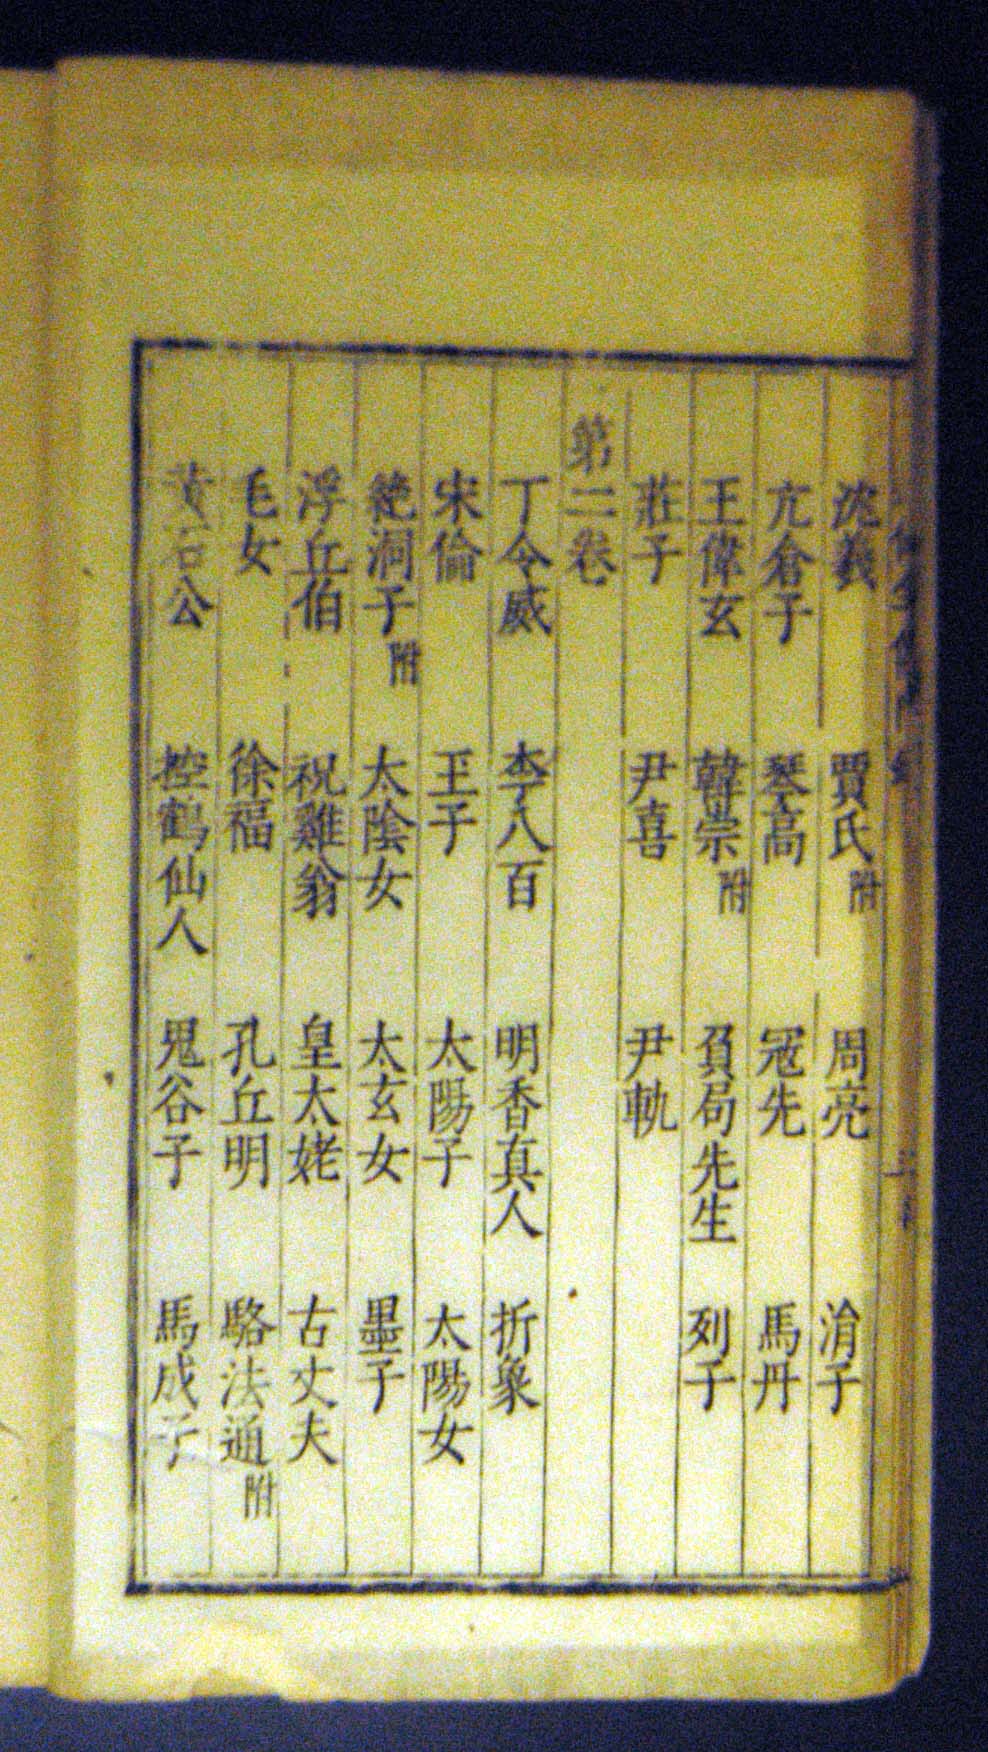 沈羲 賈氏附 周亮 涓子
亢倉子 琴高 冦先 馬丹
王偉玄 韓崇附 負局先生 列子
莊子 尹喜 尹軌
第二卷
丁令威 李八百 明香真人 折象
宋倫 王子 太陽子 太陽女
絶洞子附 太陰女 太玄女 墨子
浮丘伯 祝雞翁 皇太姥 古丈夫
毛女 徐福 孔丘明 駱法通附
黃石公 控鶴仙人 鬼谷子 馬成子